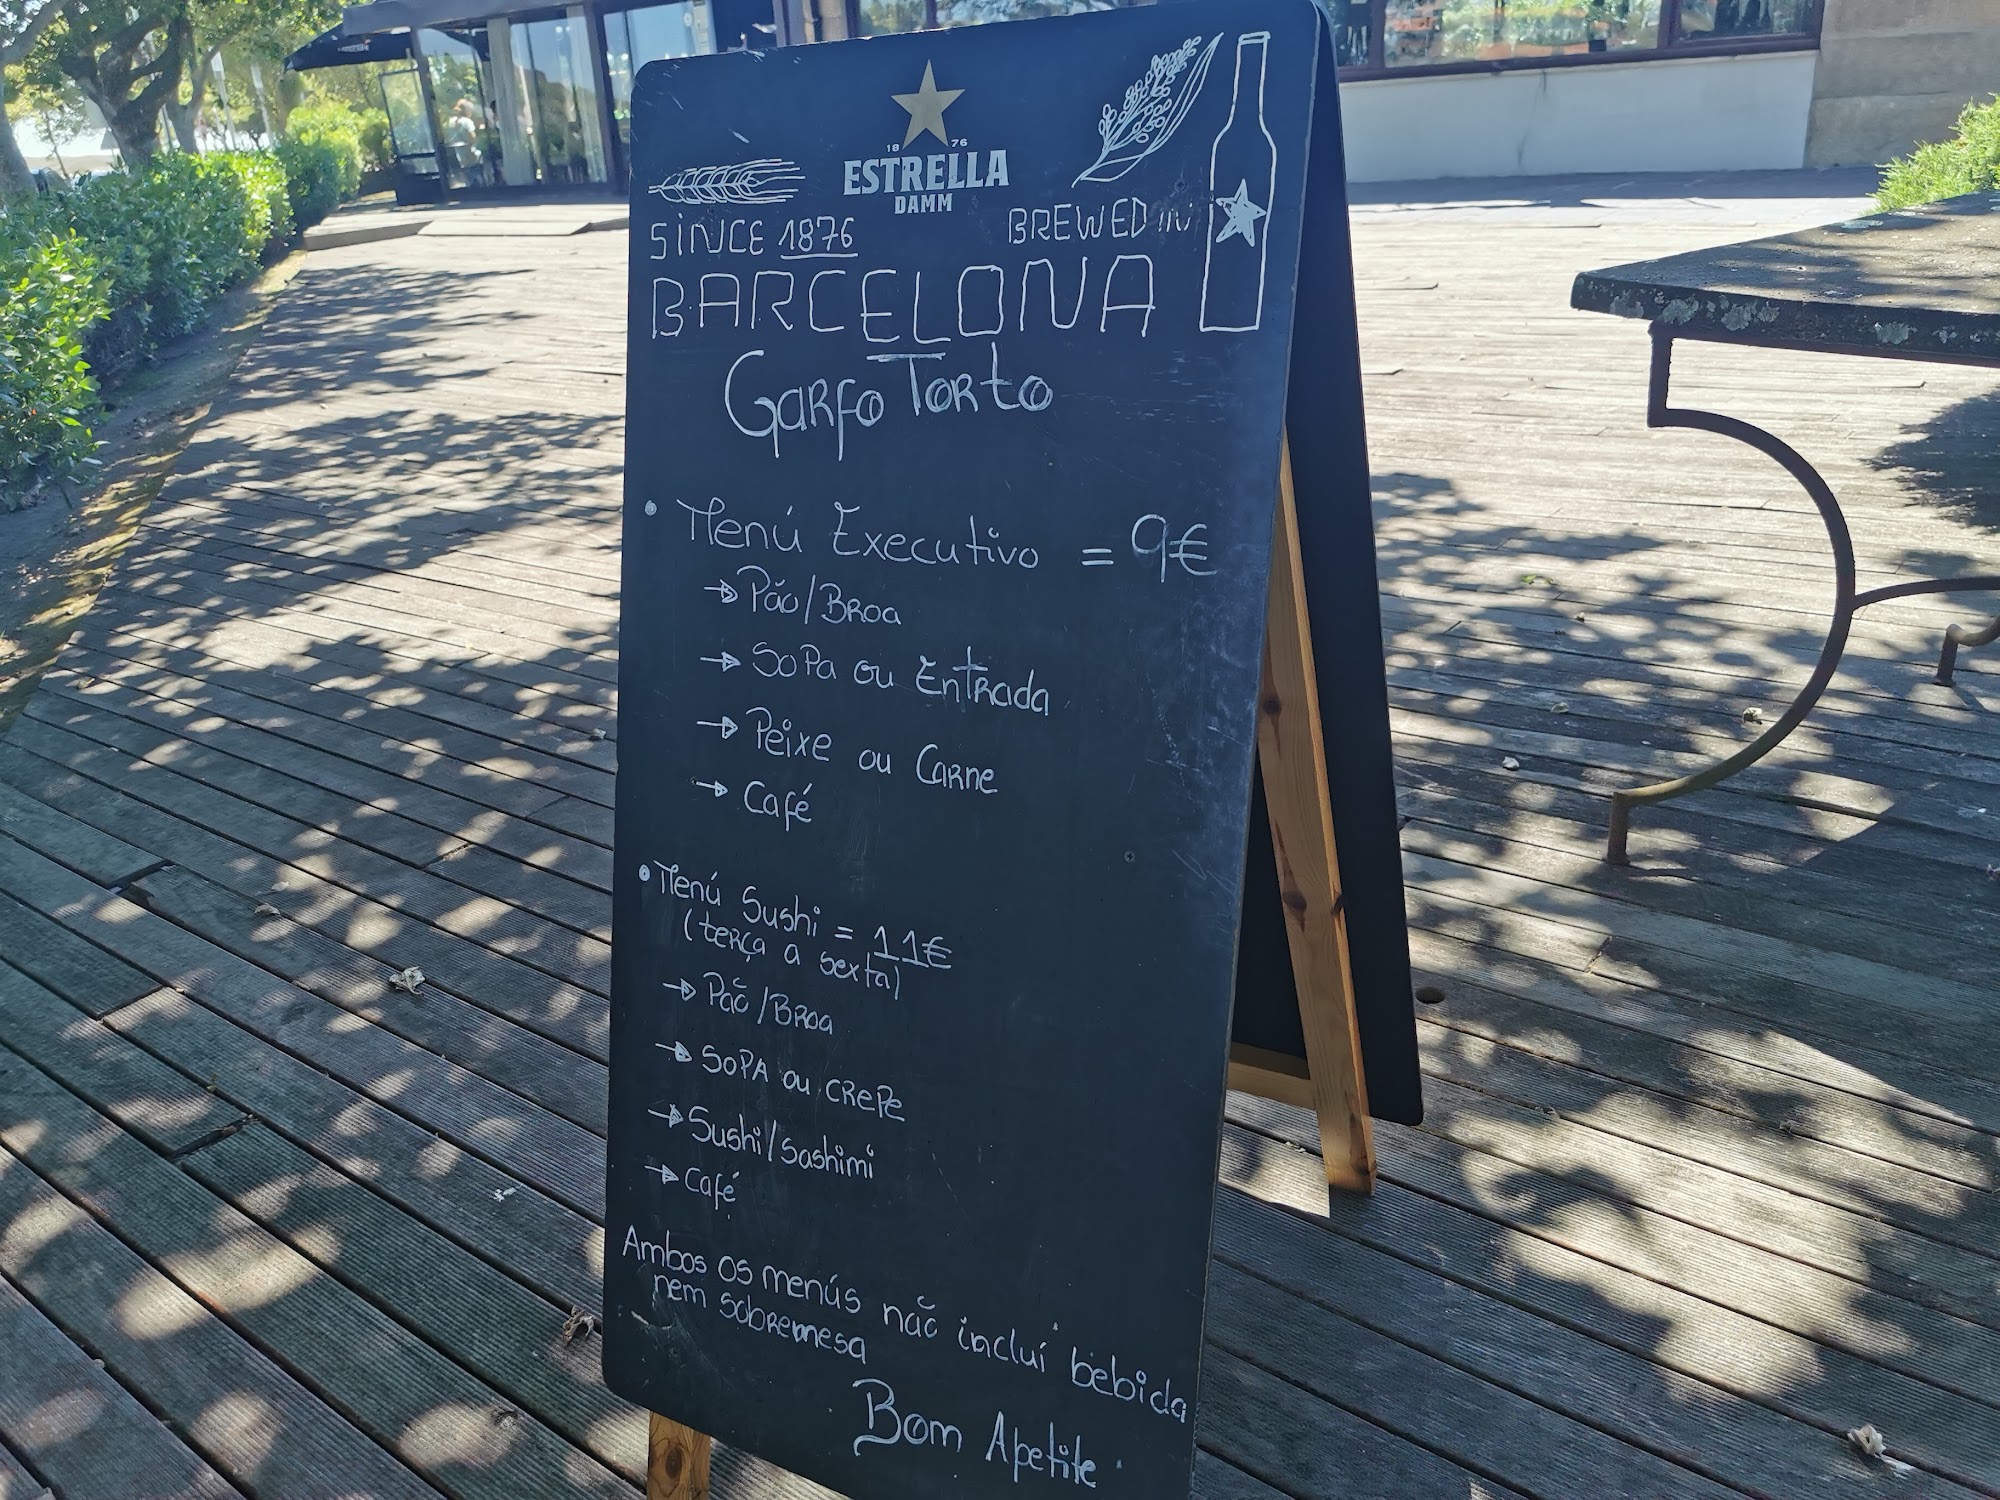 18 76
ESTRELLA
DAMM
SINCE 1876 BREWED IN
BARCELONA
GARFO TORTO
• Menú Executivo = 9€
→ Pão/Broa
→ Sopa ou Entrada
→ Peixe ou Carne
→ Café
• Menú Sushi = 11€
(terça a sexta)
→ Pão/Broa
→ Sopa ou crepe
→ Sushi/Sashimi
→ Café
Ambos os menús não incluí bebida
nem sobremesa
Bom Apetite